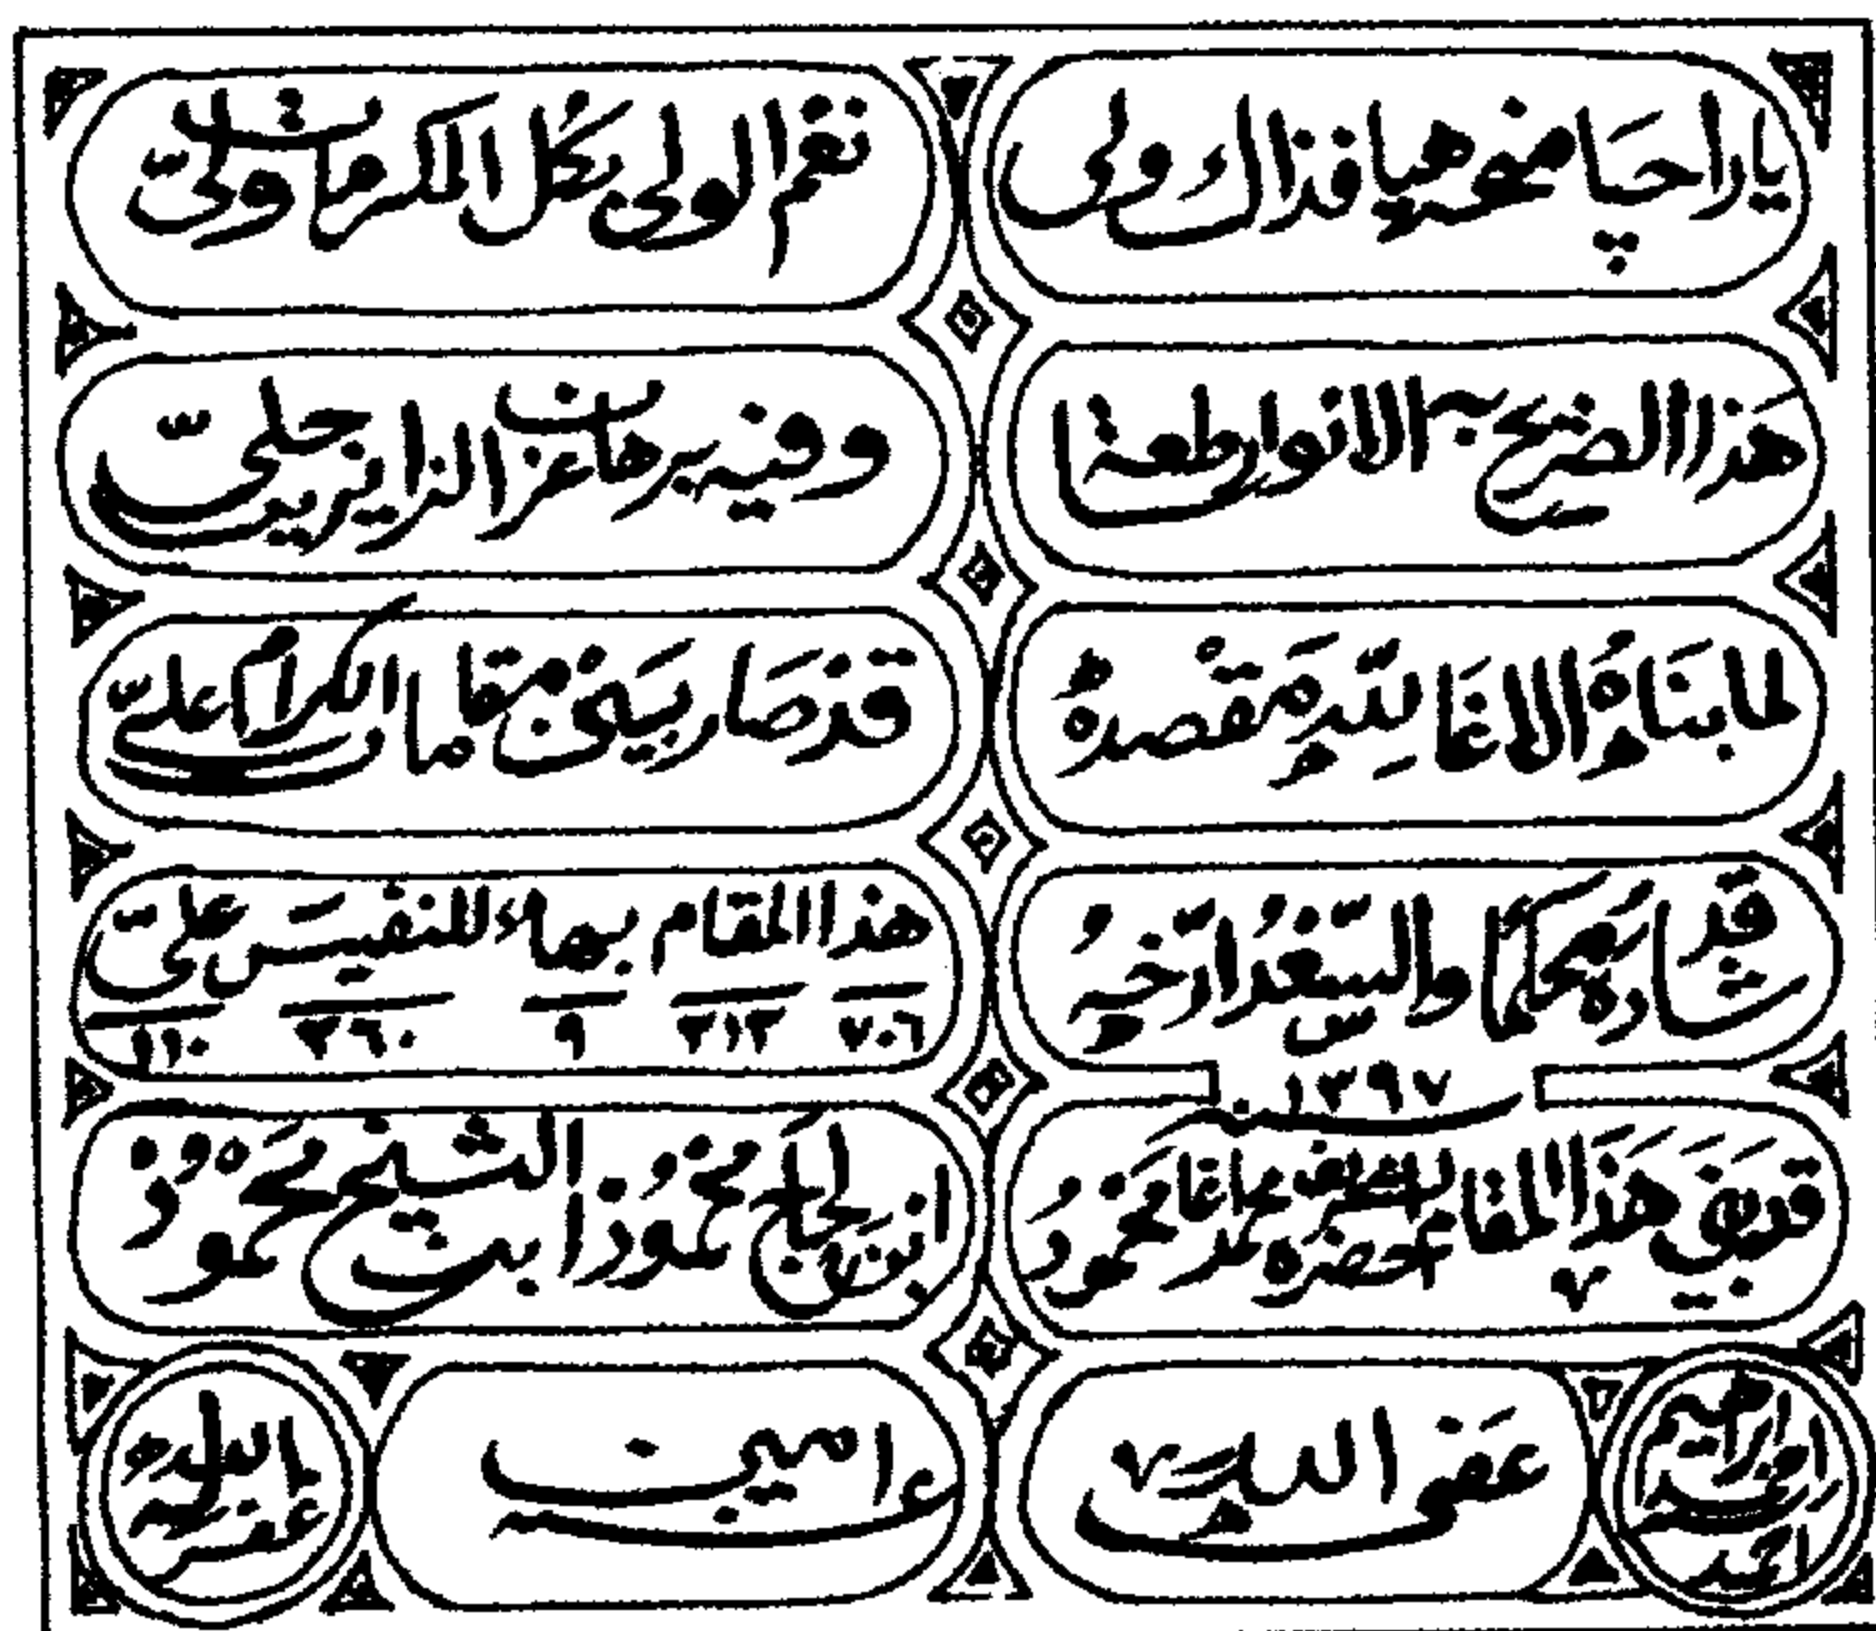 يا راجيا منحة هيا فذاك ولي
نعم الولي بكل المكرمات ولي
هذا الضريح به الأنوار ساطعة
وفيه برهان عز الزايرين جلي
لما بناه الاغا لله مقصده
قد صار بين مقامات الكرام علي
قد شاده محكما والسعد ارخه
هذا المقام بهاء للنفيس علي
٧٠٦ ٢١٢ ٩ ٢٦٠ ١١٠
سنة ١٢٩٧
قد بنى هذا المقام الشريف حضرة محمد اغا محمود
ابن الحاج محمود ابن الشيخ محمود
عفى الله
ءامين
ابراهيم
احمد
الله
غفر له